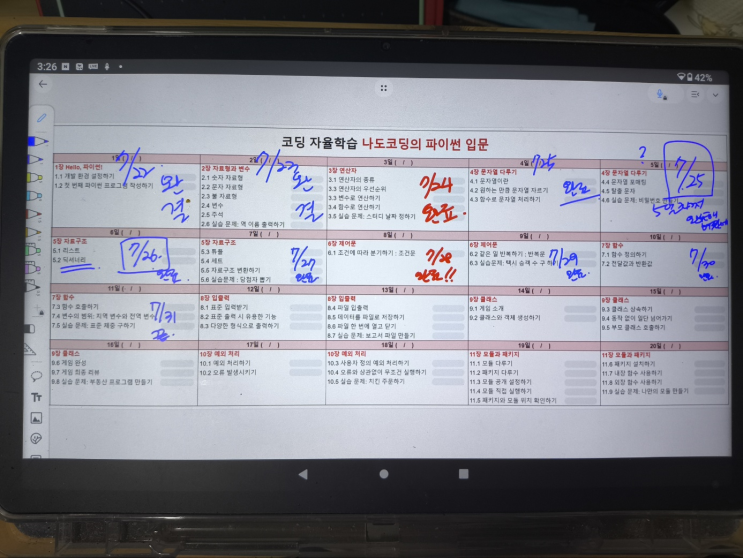 3:26
42%
코딩 자율학습 나도코딩의 파이썬 입문
1일 ( / )
7/22
1장 Hello, 파이썬!
1.1 개발 환경 설정하기
1.2 첫 번째 파이썬 프로그램 작성하기
완결
2일 ( / )
2장 자료형과 변수
2.1 숫자 자료형
2.2 문자 자료형
2.3 불 자료형
2.4 변수
2.5 주석
2.6 실습 문제: 역 이름 출력하기
완결
3일 ( / )
3장 연산자
3.1 연산자의 종류
3.3 연산자의 우선순위
3.3 변수로 연산하기
3.4 함수로 연산하기
3.5 실습 문제: 스터디 날짜 정하기
7/24
완료
4일 ( / )
7/25
4장 문자열 다루기
4.1 문자열이란
4.2 원하는 만큼 문자열 자르기
4.3 함수로 문자열 처리하기
완료
5일 ( / )
?
7/25
4장 문자열 다루기
4.4 문자열 포매팅
4.5 탈출 문자
4.6 실습 문제: 비밀번호
6일 ( / )
5장 자료구조
5.1 리스트
5.2 딕셔너리
7/26.
완료
7일 ( / )
5장 자료구조
5.3 튜플
5.4 세트
5.5 자료구조 변환하기
5.6 실습문제: 당첨자 뽑기
7/27
완료
8일 ( / )
6장 제어문
6.1 조건에 따라 분기하기: 조건문
7/28
완료!!
9일 ( / )
6장 제어문
6.2 같은 일 반복하기: 반복문
6.3 실습문제: 택시 승객 수 구하기
7/29
완료
10일 ( / )
7장 함수
7.1 함수 정의하기
7.2 전달값과 반환값
7/30
완료
11일 ( / )
7장 함수
7.3 함수 호출하기
7.4 변수의 범위: 지역 변수와 전역 변수
7.5 실습 문제: 표준 체중 구하기
7/31
12일 ( / )
8장 입출력
8.1 표준 입력받기
8.2 표준 출력 시 유용한 기능
8.3 다양한 형식으로 출력하기
13일 ( / )
8장 입출력
8.4 파일 입출력
8.5 데이터를 파일로 저장하기
8.6 파일 한 번에 열고 닫기
8.7 실습 문제: 보고서 파일 만들기
14일 ( / )
9장 클래스
9.1 게임 소개
9.2 클래스와 객체 생성하기
15일 ( / )
9장 클래스
9.3 클래스 상속하기
9.4 동작 없이 일단 넘어가기
9.5 부모 클래스 호출하기
16일 ( / )
9장 클래스
9.6 게임 완성
9.7 게임 최종 리뷰
9.8 실습 문제: 부동산 프로그램 만들기
17일 ( / )
10장 예외 처리
10.1 예외 처리하기
10.2 오류 발생시키기
18일 ( / )
10장 예외 처리
10.3 사용자 정의 예외 처리하기
10.4 오류와 상관없이 무조건 실행하기
10.5 실습 문제: 치킨 주문하기
19일 ( / )
11장 모듈과 패키지
11.1 모듈 다루기
11.2 패키지 다루기
11.3 모듈 공개 설정하기
11.4 모듈 직접 실행하기
11.5 패키지와 모듈 위치 확인하기
20일 ( / )
11장 모듈과 패키지
11.6 패키지 설치하기
11.7 내장 함수 사용하기
11.8 외장 함수 사용하기
11.9 실습 문제: 나만의 모듈 만들기